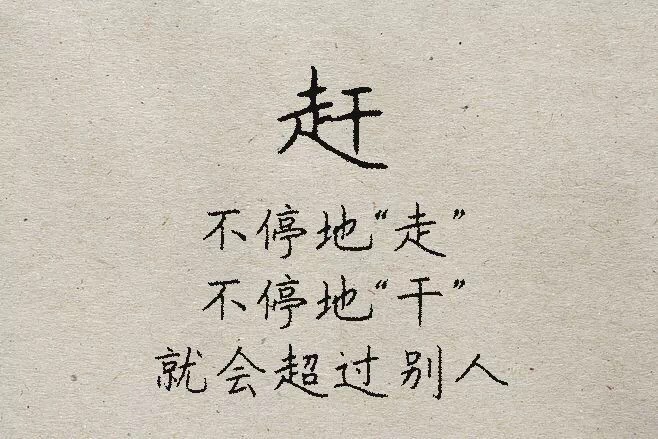 赶
不停地“走”
不停地“干”
就会超过别人